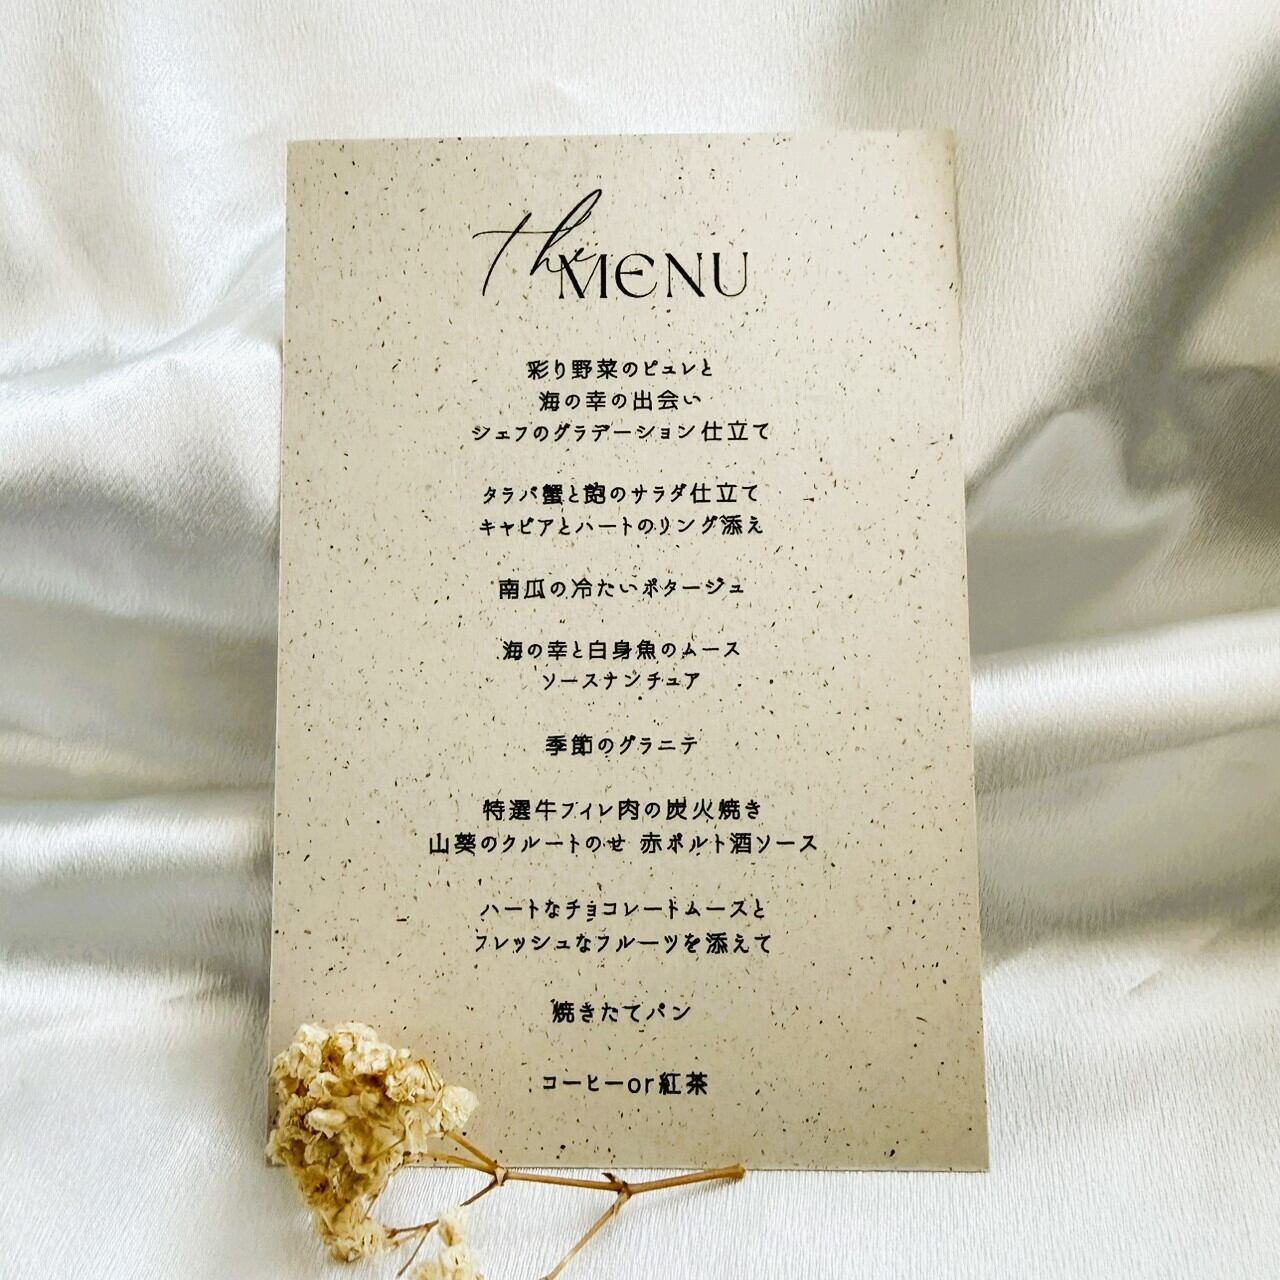 the MENU
彩り野菜のピュレと
海の幸の出会い
シェフのグラデーション仕立て
タラバ蟹と鮑のサラダ仕立て
キャビアとハートのリング添え
南瓜の冷たいポタージュ
海の幸と白身魚のムース
ソースナンチュア
季節のグラニテ
特選牛フィレ肉の炭火焼き
山葵のクルートのせ 赤ポルト酒ソース
ハートなチョコレートムースと
フレッシュなフルーツを添えて
焼きたてパン
コーヒーor紅茶